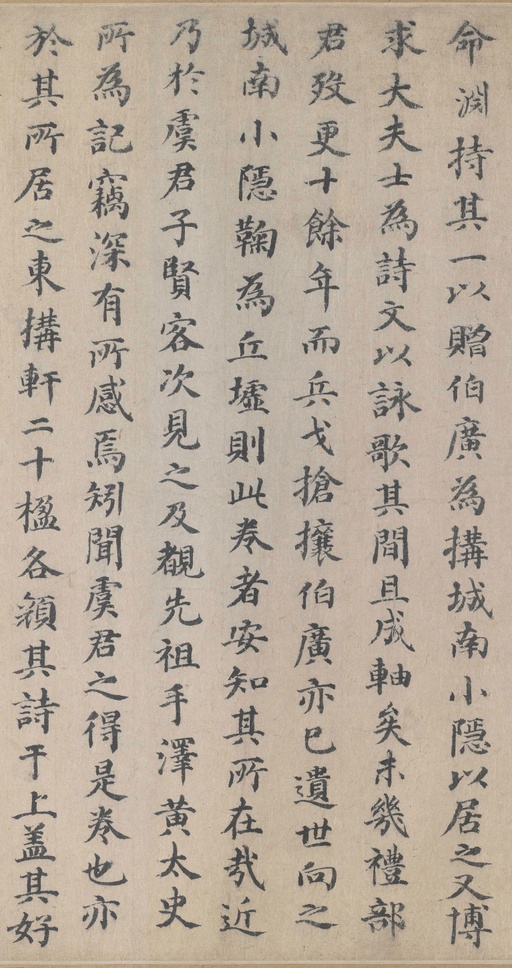 命渊持其一以贈伯廣為搆城南小隱以居之又博
求大夫士為詩文以詠歌其間且成軸矣未幾禮部
君歿更十餘年而兵戈搶攘伯廣亦已遺世向之
城南小隱鞠為丘墟則此卷者安知其所在哉近
乃於虞君子賢客次見之及覩先祖手澤黄太史
所為記竊深有所感焉矧聞虞君之得是卷也亦
於其所居之東搆軒二十楹各顙其詩于上盖其好